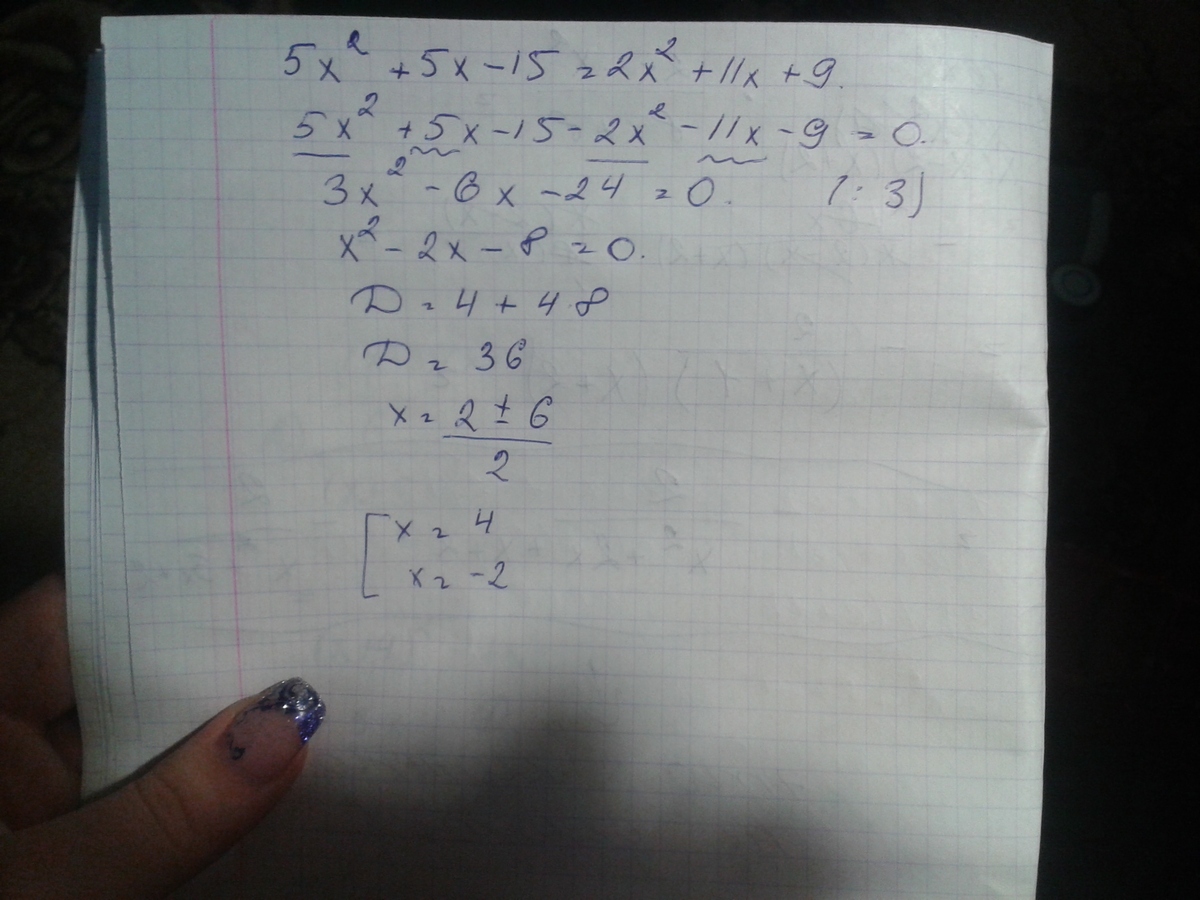 5x² + 5x - 15 = 2x² + 11x + 9.
5x² + 5x - 15 - 2x² - 11x - 9 = 0.
3x² - 6x - 24 = 0. (: 3)
x² - 2x - 8 = 0.
D = 4 + 4·8
D = 36
x = 2 ± 6
2
[ x = 4
x = -2